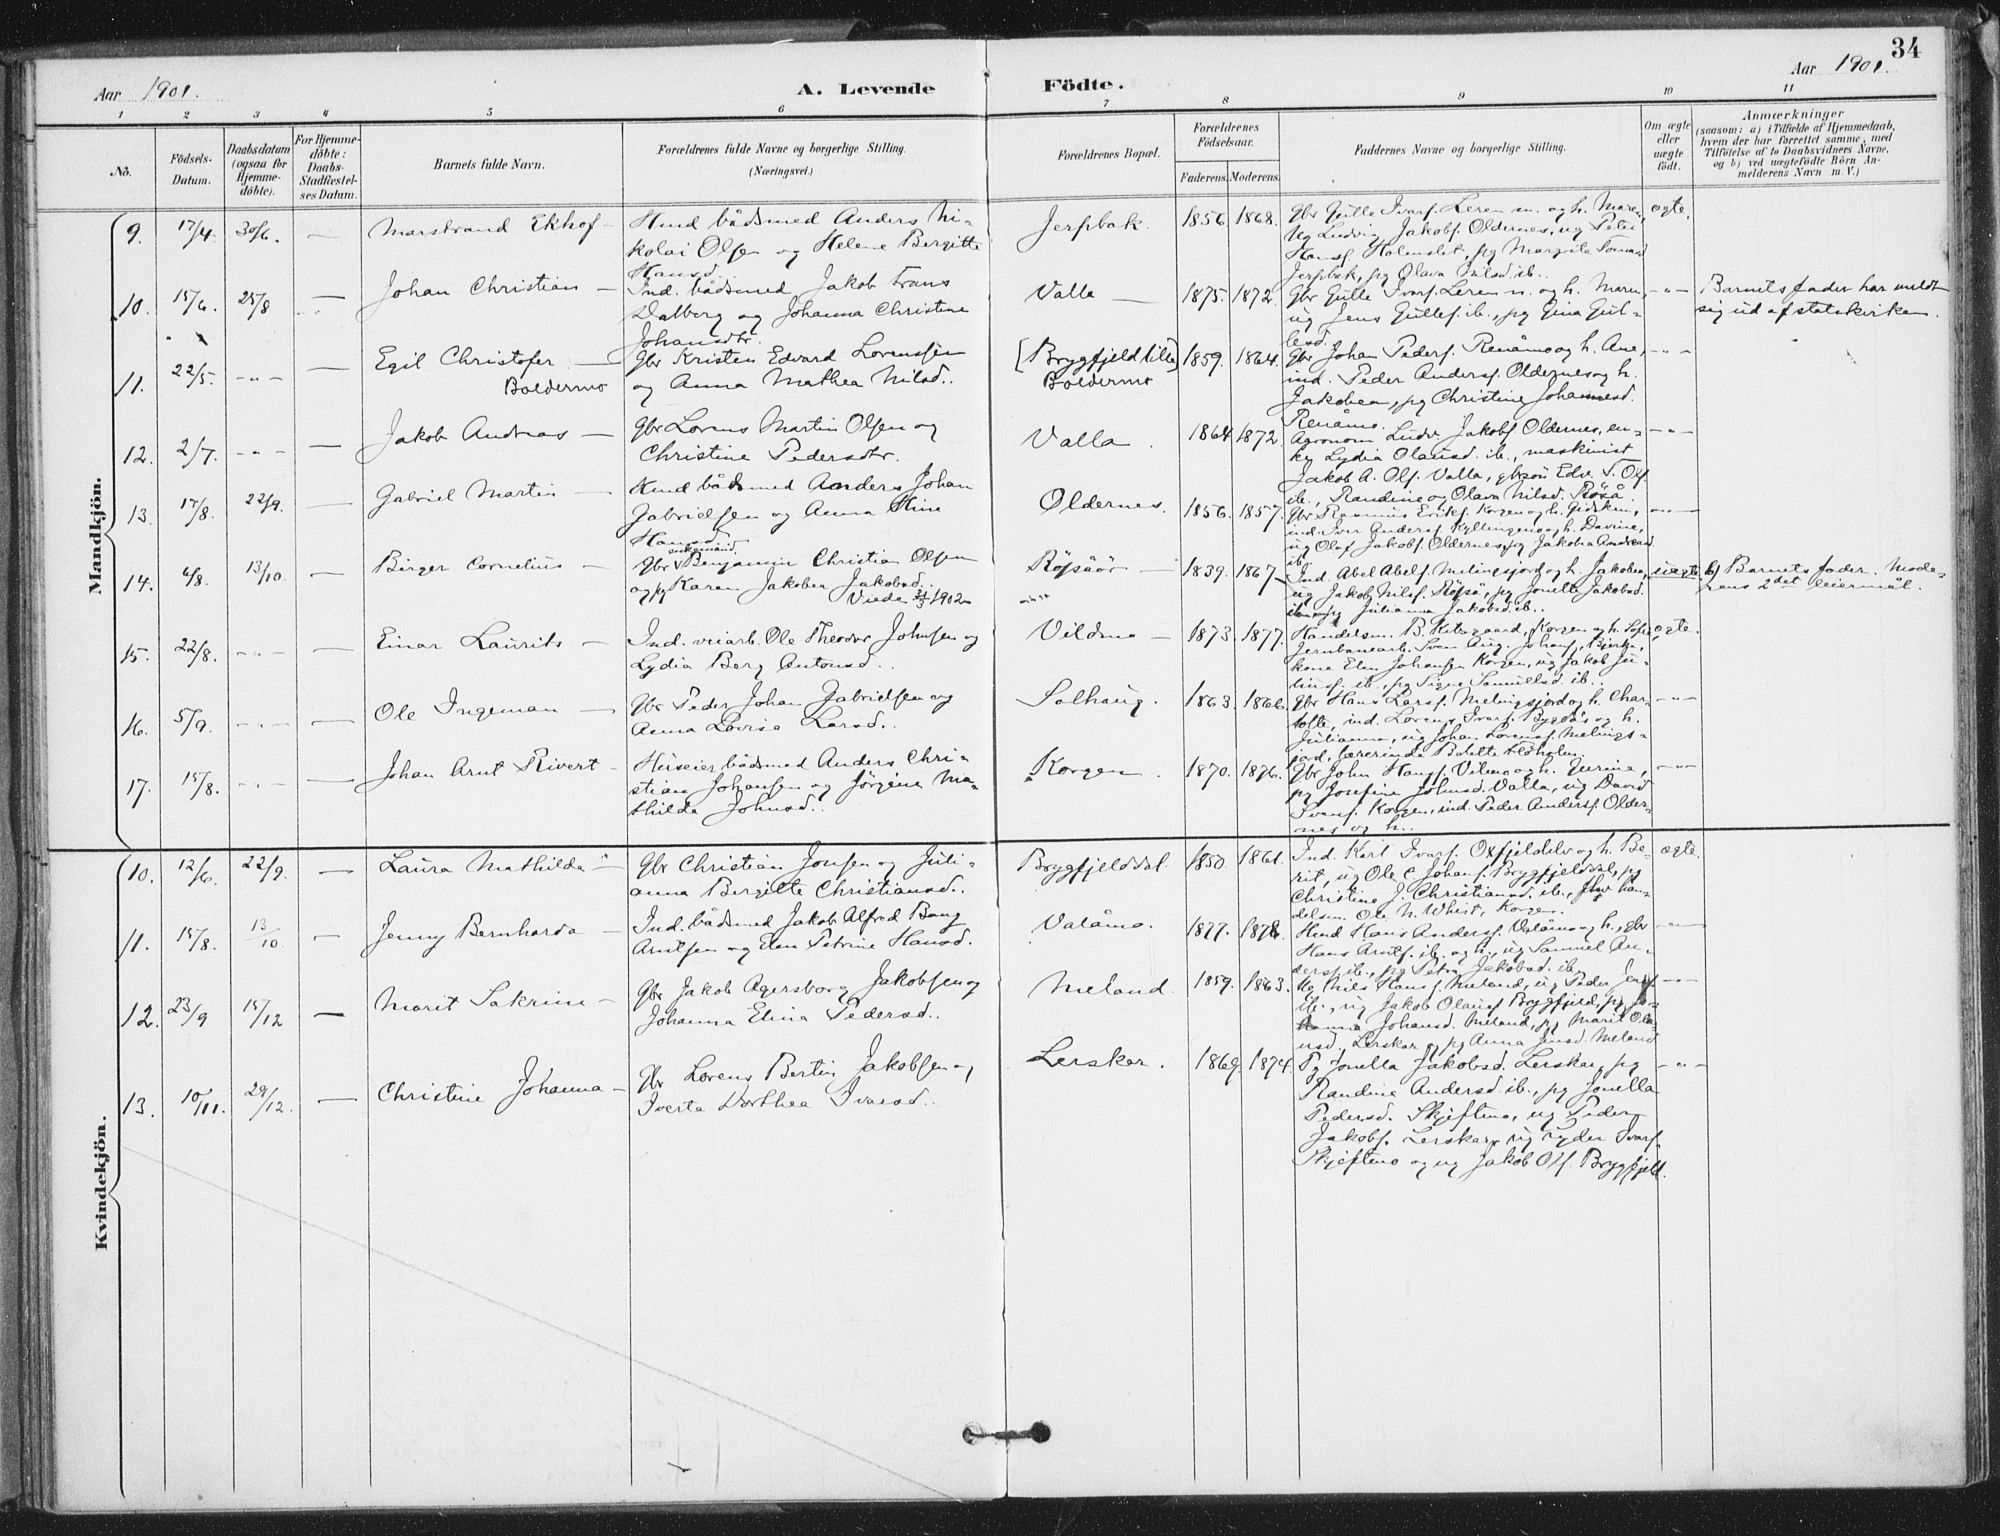 34
Aar 1901.
A. Levende Födte.
Aar 1901.
1 2 3 4 5 6 7 8 9 10 11
No.
Födsels-
Datum.
Daabsdatum
(ogsaa for
Hjemme-
döbte).
For Hjemme-
döbte:
Daabs-
Stadfæstel-
ses Datum.
Barnets fulde Navn.
Forældrenes fulde Navne og borgerlige Stilling.
(Næringsvei.)
Forældrenes Bopæl.
Forældrenes
Födselsaar.
Faderens. Moderens.
Faddernes Navne og borgerlige Stilling.
Om ægte
eller
uægte
födt.
Anmærkninger
(saasom: a) i Tilfælde af Hjemmedaab,
hvem der har forrettet samme, med
Tilföielse af to Daabsvidners Navne,
og b) ved uægtefödte Börn An-
melderens Navn m. V.)
Mandkjön.
9. 17/4. 30/6. — Marstrand Ekhof —
Hmd bådsmed Anders Ni-
kolai Olsen og Helene Bergitte
Hansd.
Jerpbak. 1856. 1868.
Gbr Gulle Ivars. Leren m. og h. Maren,
Ug Ludvig Jakobs. Oldernes, ug Peter
Hans. Holmslet, pg Margrete
Jerpbak, pg Olava Nilsd. ib..
ægte.
10. 15/6. 25/8 — Johan Christian —
Ind. bådsmed Jakob Frans
Dalberg og Johanna Christine
Johansdtr.
Valla — 1875. 1872.
Gbr Gulle Ivars. Leren m. og h. Maren,
ug Jens Gulles. ib., pg Gina Gul-
lesd.
—"—
Barnets fader har meldt
sig ud af statskirken.
11. 22/5. —"— — Egil Christofer —
Boldermo
Gbr Kristen Edvard Lorenssen
og Anna Mathea Nilsd..
[Brygfjeld lille]
Boldermo
1859. 1864.
Gbr Johan Peders. Renåmo og h. Ane,
ind. Peder Anders. Oldernes og h.
Jakobea, pg Christine Johannesd.
Renåmo.
—"—
12. 2/7. —"— — Jakob Andreas —
Gbr Lorens Martin Olsen og
Christine Pedersdtr.
Valla. 1864. 1872.
Agronom Ludv. Jakobs. Oldernes, en-
ke Lydia Olausd. ib., maskinist
Jakob A. Ols. Valla, gbrsön Edv. T. Ols.
ib., Randine og Olava Nilsd. Röså.
—"—
13. 17/8. 22/9. — Gabriel Martin —
Kmd bådsmed Anders Johan
Gabrielsen og Anna Stine
Hansd.
Oldernes. 1856. 1857.
Gbr Rasmus Eriks. Korgen og h. Gidsken,
ind. Iver Anders. Kyllingmo og h. Davine,
ug Olaf Jakobs. Oldernes, pg Jakobea Andreasd.
ib.
—"—
14. 6/8. 13/10. — Birger Cornelius —
enkemand
Gbr Benjamin Christian Olsen
og pg Karen Jakobea Jakobsd..
Viede 31/3 1902
Röpsåör — 1839. 1867.
Ind. Abel Abels. Melingsjord og h. Jakobea,
ug Jakob Nils. Röså, pg Jonette Jakobsd.
ib. og pg Julianna Jakobsd. ib..
uægte.
b) Barnets fader. Mode-
rens 2det leiermål.
15. 22/8. —"— — Einar Laurits —
Ind. veiarb. Ole Theodor Johnsen og
Lydia Berg Antonsd..
Vildmo — 1873. 1877.
Handelsm. B. Kibsgaard, Korgen og h. Sofie,
Jernbanearb. Sven Aug. Johans. Bjerka,
kone Elen Johansen Korgen, ug Jakob Ju-
lius. ib., pg Signe Samuelsd. ib..
ægte.
16. 5/9. —"— — Ole Ingeman —
Gbr Peder Johan Gabrielsen og
Anna Lovisa Larsd..
Solhaug. 1863. 1866.
Gbr Hans Lars. Melingsjord og h. Char-
lotte, ind. Lorens Ivars. Bygdås og h.
Julianna, ug Johan Lorens. Melings-
jord, lærerinde Bolette Alsholm.
—"—
17. 15/8. —"— — Johan Arnt Sivert —
Huseier bådsmed Anders Chri-
stian Johansen og Jörgine Ma-
thilda Johnsd..
Korgen. 1870. 1876.
Gbr John Hans. Vilmo og h. Jurine,
pg Josefine Johnsd. Valla, ug David
Svens. Korgen, ind. Peder Anders. Older-
nes og h..
—"—
Kvindekjön.
10. 12/6. 22/9. — Laura Mathilda —
Gbr Christian Jonsen og Juli-
anna Bergitte Christiansd..
Brygfjelddal. 1850. 1861.
Ind. Karl Ivars. Oxfjeldelv og h. Be-
rit, ug Ole C. Johans. Brygfjelddal, pg
Christine J. Christiansd. ib., fhv. han-
delsm. Ole N. Whist, Korgen.
ægte.
11. 15/8. 13/10. — Jenny Bernharda —
Ind. bådsmed Jakob Alfred Bang
Arntsen og Elen Petrine Hansd.
Valåmo. 1877. 1878.
Hmd Hans Anders. Valåmo og h., gbr
Hans Arnts. ib. og h., ug Samuel An-
ders. ib., pg Petra Jakobsd. ib.
—"—
12. 23/9 15/12 — Marit Sakrine —
Gbr Jakob Agersborg Jakobsen og
Johanna Elina Pedersd..
Meland. 1859. 1863.
Ug Nils Hans. Meland, ug Peder Jens.
ib., ug Jakob Olaus. Brygfjeld, pg Jo-
hanna Johansd. Meland, pg Marit Ola-
usd. Lerskar og pg Anna Jensd. Meland
—"—
13. 10/11. 29/12. — Christine Johanna —
Gbr Lorens Bertin Jakobsen og
Iverta Dorthea Ivarsd..
Lerskar. 1869. 1874.
Pg Jonella Jakobsd. Lerskar, pg
Randine Andersd. ib., pg Jonella
Pedersd. Skjeftmo, ug Peder
Jakobs. Lerskar, ug Peder Ivars.
Skjeftmo og ug Jakob Ols. Brygfjeld.
—"—